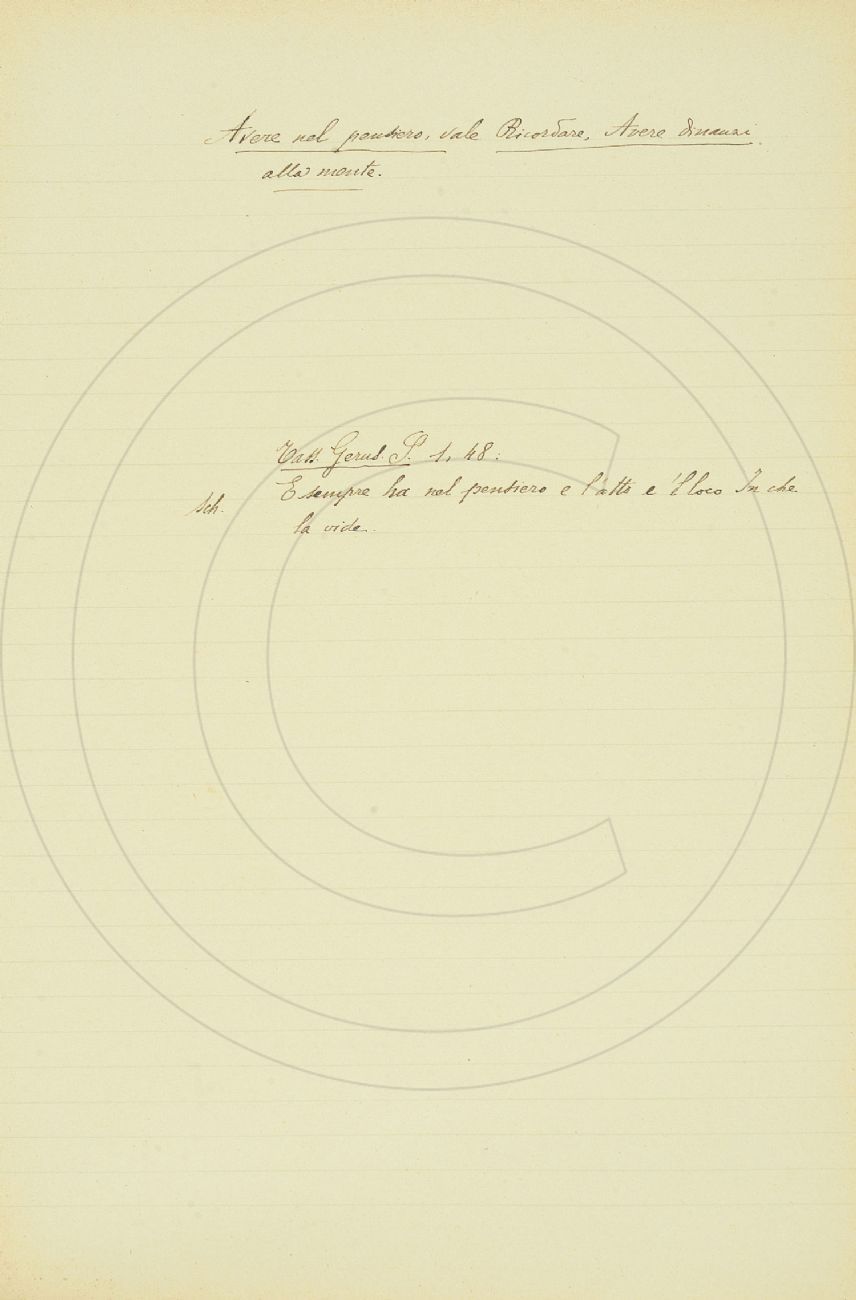 Avere nel pensiero, vale Ricordare, Avere dinanzi
alla mente.
Tass. Gerus. S. 1, 48:
Sch. E sempre ha nel pensiero e l'atto e 'l loco In che
la vide.